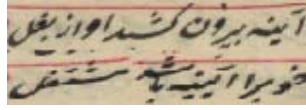 آینه بیرون کشید او از بغل
خویرا آئینه باشد مشتغل